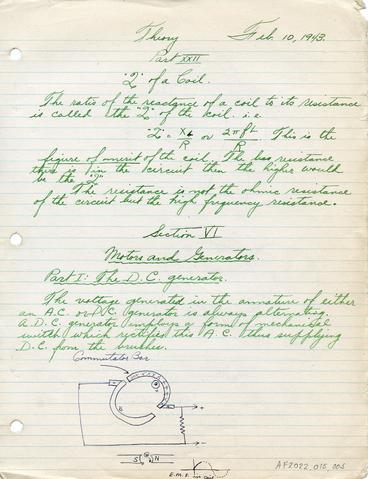 Theory Feb. 10, 1943.
Part XXII
"Q" of a Coil.
The ratio of the reactance of a coil to its resistance
is called the "Q" of the coil. i.e.
"Q" = XL/R or 2πfL/R. This is the
figure of merit of the coil. The less resistance
there is in the circuit then the higher would
be the "Q"
The resistance is not the ohmic resistance
of the circuit but the high frequency resistance.
Section VI
Motors and Generators.
Part I: The D.C. generator.
The voltage generated in the armature of either
an A.C. or D.C. generator is always alternating.
A D.C. generator employs a form of mechanical
switch which rectifies this A.C. thus supplying
D.C. from the brushes.
Commutator Bar
+
-
S N
E.M.F.
AF2022_015_005